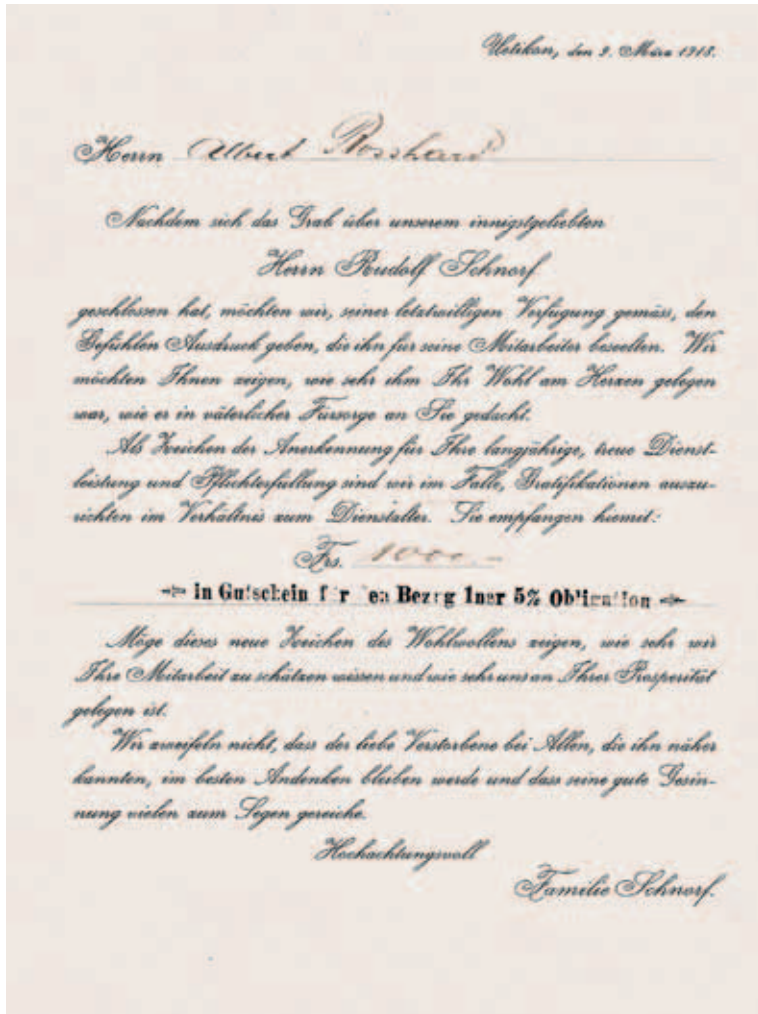 Uetikon, den 9. März 1918.
Herrn Albert Bosshard
Nachdem sich das Grab über unserem innigstgeliebten
Herrn Rudolf Schnorf
geschlossen hat, möchten wir, seiner letztwilligen Verfügung gemäss, den
Gefühlen Ausdruck geben, die ihn für seine Mitarbeiter beseelten. Wir
möchten Ihnen zeigen, wie sehr ihm Ihr Wohl am Herzen gelegen
war, wie er in väterlicher Fürsorge an Sie gedacht.
Als Zeichen der Anerkennung für Ihre langjährige, treue Dienst-
leistung und Pflichterfüllung sind wir im Falle, Gratifikationen auszu-
richten im Verhältnis zum Dienstalter. Sie empfangen hiemit:
Frs. 1000.-
in Gutschein für Bezug einer 5% Obligation
Möge dieses neue Zeichen des Wohlwollens zeigen, wie sehr wir
Ihre Mitarbeit zu schätzen wissen und wie sehr uns an Ihrer Prosperität
gelegen ist.
Wir zweifeln nicht, dass der liebe Verstorbene bei Allen, die ihn näher
kannten, im besten Andenken bleiben werde und dass seine gute Gesin-
nung vielen zum Segen gereiche.
Hochachtungsvoll
Familie Schnorf.